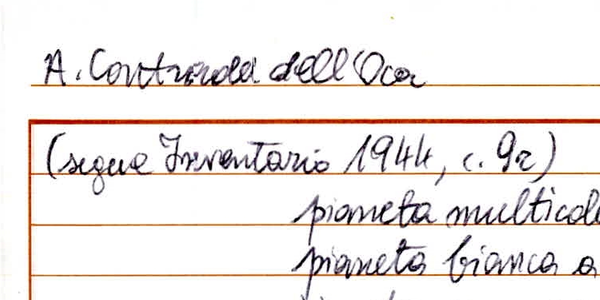 A. Contrada dell'Oca
(segue Inventario 1944, c. 9r)
pianeta multicol
pianeta bianca a